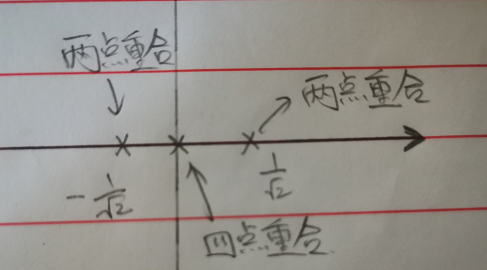 两点重合
两点重合
-1/√2
1/√2
四点重合